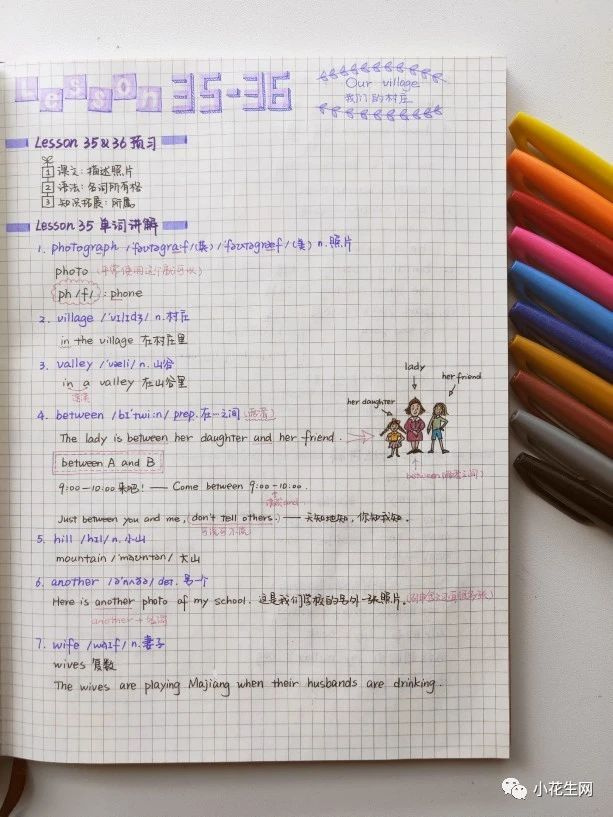 Lesson 35-36
Our village
我们的村庄
Lesson 35&36 预习
1 课文：描述照片
2 语法：名词所有格
3 知识拓展：所属
Lesson 35 单词讲解
1. photograph /ˈfəʊtəgrɑːf/(英) /ˈfəʊtəgræf/(美) n.照片
photo
ph /f/ : phone
2. village /ˈvɪlɪdʒ/ n.村庄
in the village 在村庄里
3. valley /ˈvæli/ n.山谷
in a valley 在山谷里
连读
4. between /bɪˈtwiːn/ prep.在…之间(两者)
lady
her friend
her daughter
The lady is between her daughter and her friend.
between A and B
between(两者之间)
9:00—10:00来吧！—— Come between 9:00-10:00.
Just between you and me, don't tell others. ——天知地知，你知我知。
可说可不说
5. hill /hɪl/ n.小山
mountain /ˈmaʊntən/ 大山
6. another /əˈnʌðə/ det.另一个
Here is another photo of my school. 这是我们学校的另外一张照片。
another+名词
7. wife /waɪf/ n.妻子
wives 复数
The wives are playing Majiang when their husbands are drinking.
小花生网